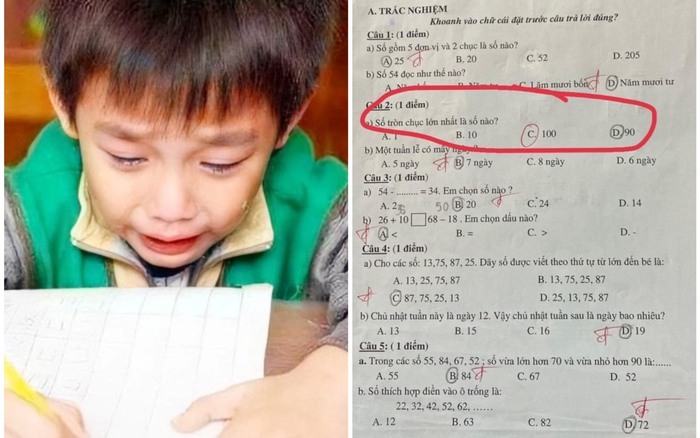 A. TRẮC NGHIỆM
Khoanh vào chữ cái đặt trước câu trả lời đúng?
Câu 1: (1 điểm)
a) Số gồm 5 đơn vị và 2 chục là số nào?
A 25 B. 20 C. 52 D. 205
b) Số 54 đọc như thế nào?
mươi bốn D Năm mươi tư
Câu 2: (1 điểm)
a) Số tròn chục lớn nhất là số nào?
A. 1 B. 10 C. 100 D. 90
b) Một tuần lễ có mấy ngày?
A. 5 ngày B 7 ngày C. 8 ngày D. 6 ngày
Câu 3: (1 điểm)
a) 54 - ......... = 34. Em chọn số nào ?
A. 2 50 B. 20 C. 24 D. 14
b) 26 + 10 68 – 18 . Em chọn dấu nào?
A < B. = C. > D. -
Câu 4: (1 điểm)
a) Cho các số: 13,75, 87, 25. Dãy số được viết theo thứ tự từ lớn đến bé là:
A. 13, 25, 75, 87 B. 13, 75, 25, 87
C 87, 75, 25, 13 D. 25, 13, 75, 87
b) Chủ nhật tuần này là ngày 12. Vậy chủ nhật tuần sau là ngày bao nhiêu?
A. 13 B. 15 C. 16 D. 19
Câu 5: ( 1 điểm)
a. Trong các số 55, 84, 67, 52 ; số vừa lớn hơn 70 và vừa nhỏ hơn 90 là:......
A. 55 B. 84 C. 67 D. 52
b. Số thích hợp điền vào ô trống là:
22, 32, 42, 52, 62, ......
A. 12 B. 63 C. 82 D. 72